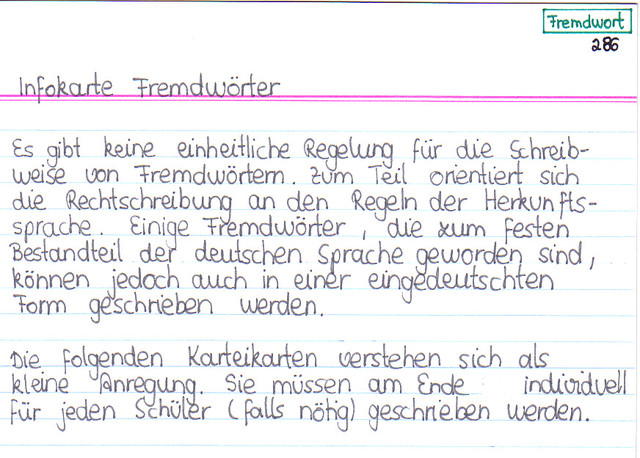 Fremdwort
286
Infokarte Fremdwörter
Es gibt keine einheitliche Regelung für die Schreib-
weise von Fremdwörtern. Zum Teil orientiert sich
die Rechtschreibung an den Regeln der Herkunfts-
sprache. Einige Fremdwörter, die zum festen
Bestandteil der deutschen Sprache geworden sind,
können jedoch auch in einer eingedeutschten
Form geschrieben werden.
Die folgenden Karteikarten verstehen sich als
kleine Anregung. Sie müssen am Ende individuell
für jeden Schüler (falls nötig) geschrieben werden.